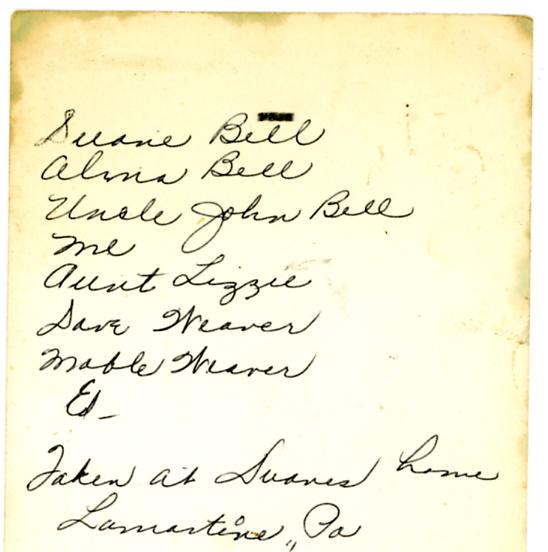 Duane Bell
Alma Bell
Uncle John Bell
Me
Aunt Lizzie
Dave Weaver
Mable Weaver
Ed-
Taken at Duanes home
Lamartine, Pa